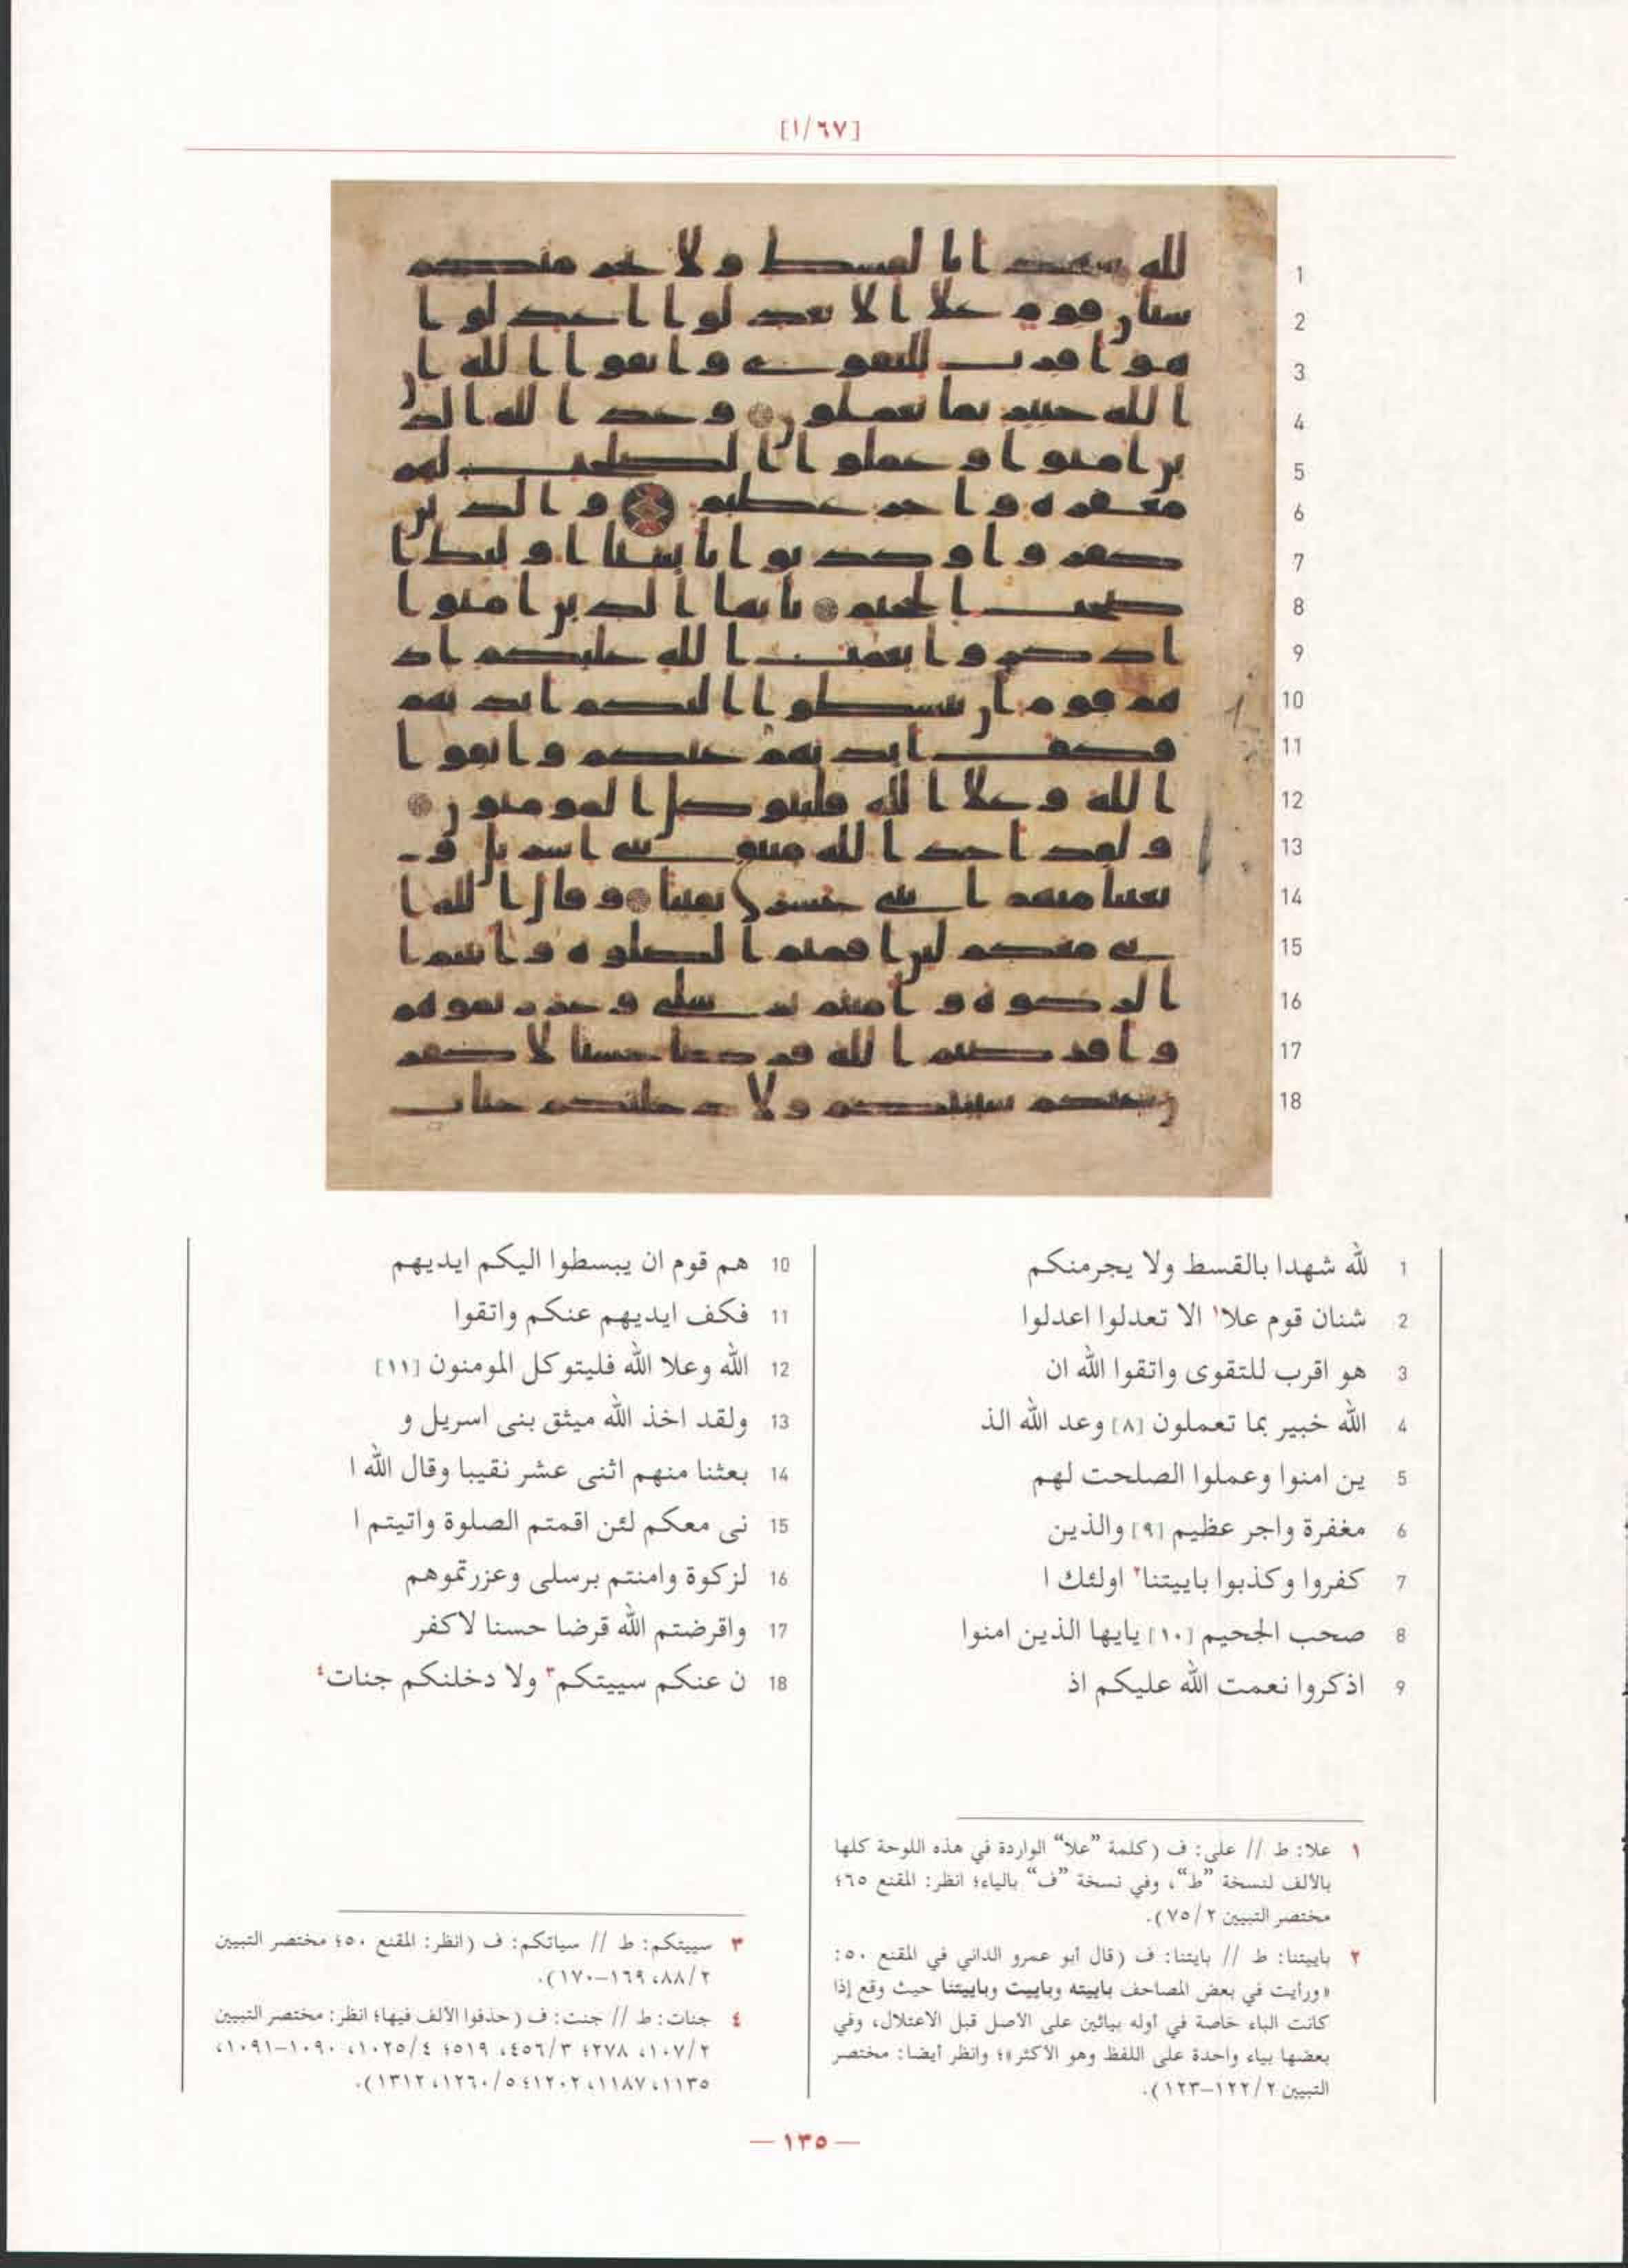 [١/٦٧]
1
2
3
4
5
6
7
8
9
10
11
12
13
14
15
16
17
18
1 لله شهدا بالقسط ولا يجرمنكم
2 شنان قوم علا١ الا تعدلوا اعدلوا
3 هو اقرب للتقوى واتقوا الله ان
4 الله خبير بما تعملون [٨] وعد الله الذ
5 ين امنوا وعملوا الصلحت لهم
6 مغفرة واجر عظيم [٩] والذين
7 كفروا وكذبوا باييتنا٢ اولئك ا
8 صحب الجحيم [١٠] يايها الذين امنوا
9 اذكروا نعمت الله عليكم اذ
10 هم قوم ان يبسطوا اليكم ايديهم
11 فكف ايديهم عنكم واتقوا
12 الله وعلا الله فليتوكل المومنون [١١]
13 ولقد اخذ الله ميثق بنى اسريل و
14 بعثنا منهم اثنى عشر نقيبا وقال الله ا
15 نى معكم لئن اقمتم الصلوة واتيتم ا
16 لزكوة وامنتم برسلى وعزرتموهم
17 واقرضتم الله قرضا حسنا لاكفر
18 ن عنكم سييتكم٣ ولا دخلنكم جنات٤
١ علا: ط // على: ف (كلمة ”علا“ الواردة في هذه اللوحة كلها
بالألف لنسخة ”ط“، وفي نسخة ”ف“ بالياء؛ انظر: المقنع ٦٥؛
مختصر التبيين ٧٥/٢).
٢ باييتنا: ط // بايتنا: ف (قال أبو عمرو الداني في المقنع ٥٠:
«ورأيت في بعض المصاحف باييته وباييت وباييتنا حيث وقع إذا
كانت الباء خاصة في أوله بيائين على الأصل قبل الاعتلال، وفي
بعضها بياء واحدة على اللفظ وهو الأكثر»؛ وانظر أيضا: مختصر
التبيين ١٢٢/٢–١٢٣).
٣ سييتكم: ط // سياتكم: ف (انظر: المقنع ٥٠؛ مختصر التبيين
٨٨/٢، ١٦٩–١٧٠).
٤ جنات: ط // جنت: ف (حذفوا الألف فيها؛ انظر: مختصر التبيين
١٠٧/٢، ٢٧٨؛ ٤٥٦/٣، ٥١٩؛ ١٠٢٥/٤، ١٠٩٠–١٠٩١،
١١٣٥، ١١٨٧، ١٢٠٢؛ ١٢٦٠/٥، ١٣١٢).
— ١٣٥ —